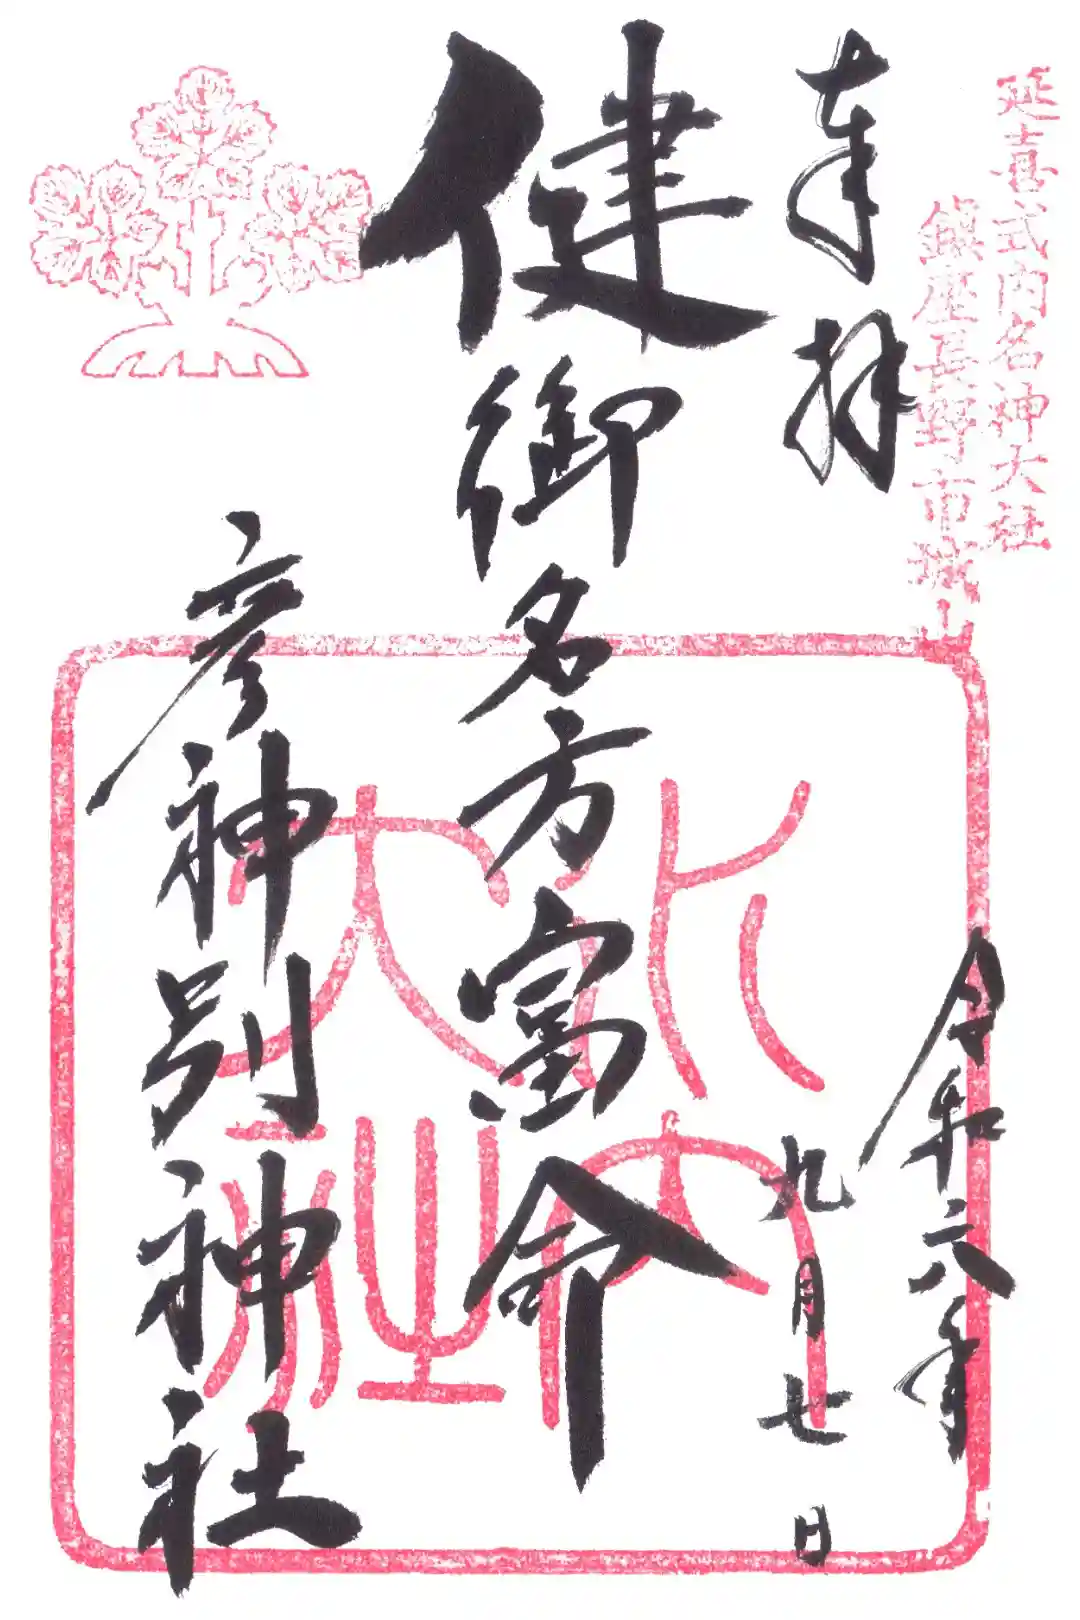 延喜式内名神大社
鎮座長野市城山
奉拝
令和六年
九月七日
健御名方富命
彦神別神社
水内
大社